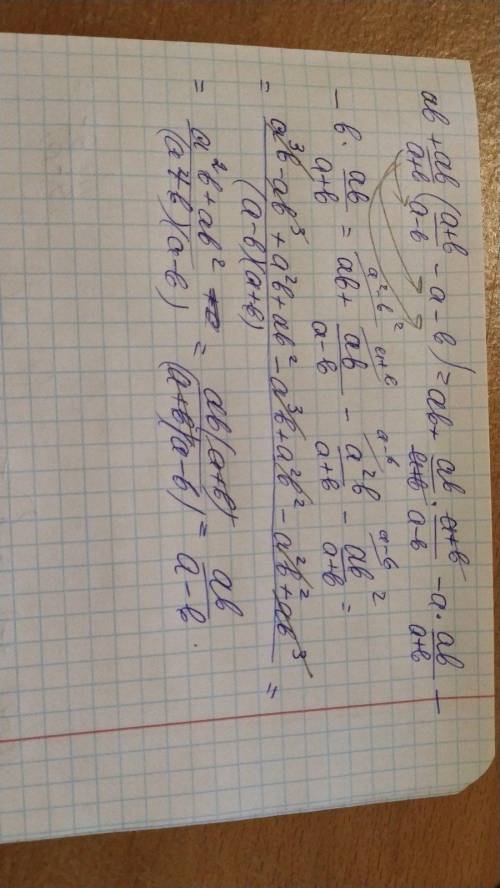 ab + ab/(a+b) ((a+b)/(a-b) - a - b) = ab + ab/(a+b) · (a+b)/(a-b) - a · ab/(a+b) -
- b · ab/(a+b) = ab + ab/(a-b) - a²b/(a+b) - ab²/(a+b) =
= (a³b - ab³ + a²b + ab² - a³b + a²b² - a²b² + ab³)/((a-b)(a+b)) =
= (a²b + ab²)/((a+b)(a-b)) = ab(a+b)/((a+b)(a-b)) = ab/(a-b).